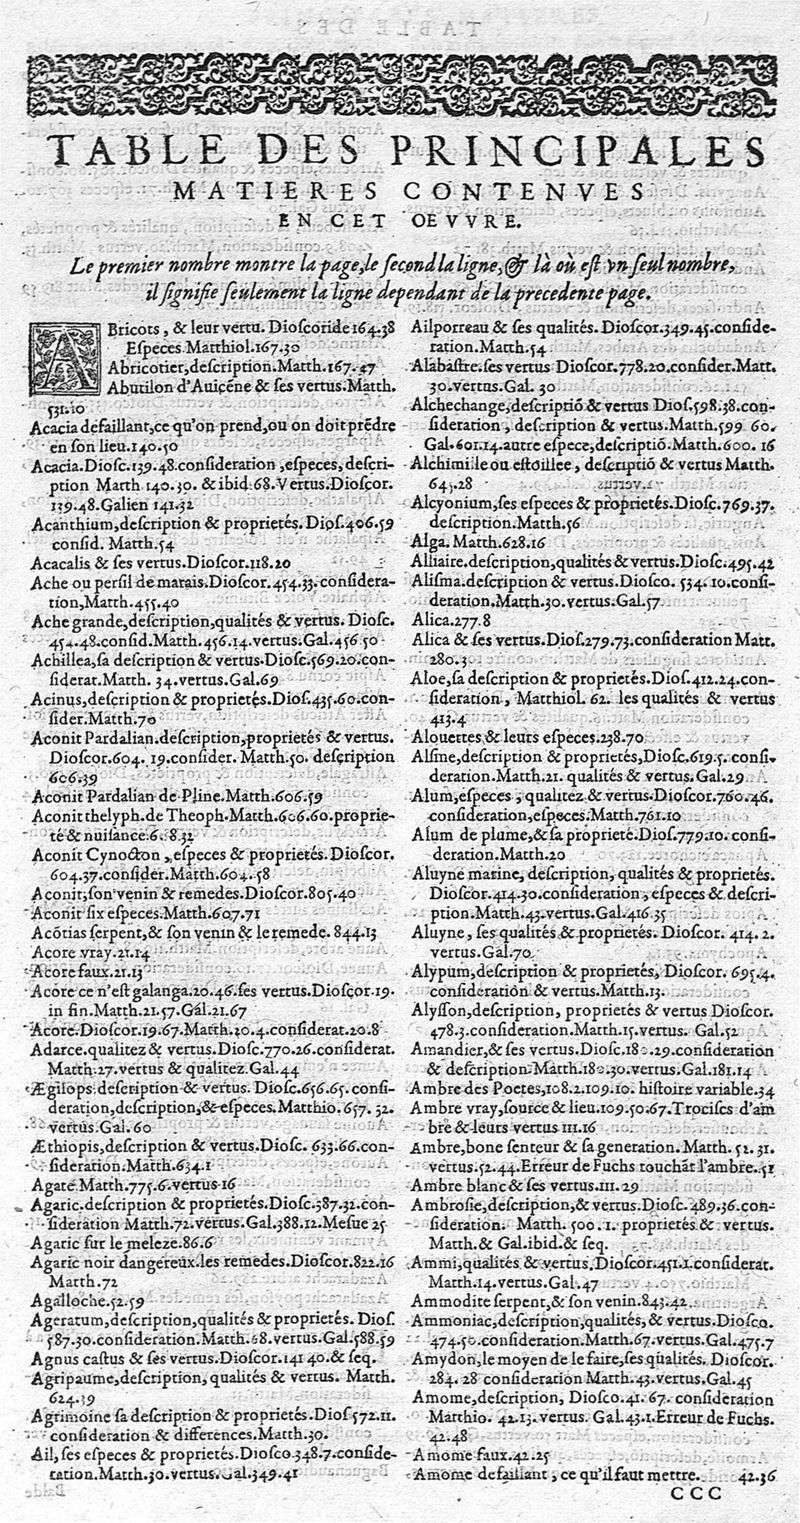 TABLE DES PRINCIPALES
MATIERES CONTENVES
EN CET OEVVRE.
Le premier nombre montre la page, le second la ligne, & là où est vn seul nombre,
il signifie seulement la ligne dependant de la precedente page.
ABricots, & leur vertu. Dioscoride 164.38
Especes Matthiol.167.30
Abricotier, description.Matth.167.47
Abutilon d'Auicẽne & ses vertus.Matth.
531.10
Acacia defaillant, ce qu'on prend, ou on doit prẽdre
en son lieu.140.50
Acacia.Diosc.139.48.consideration, especes, descri-
ption Matth 140.30. & ibid.68.Vertus.Dioscor.
139.48.Galien 141.32
Acanthium, description & proprietés. Dios.406.59
consid. Matth.54
Acacalis & ses vertus.Dioscor.118.20
Ache ou persil de marais.Dioscor.454.33.considera-
tion, Matth.455.40
Ache grande, description, qualités & vertus. Diosc.
454.48.consid.Matth.456.14.vertus.Gal.456.50
Achillea, sa description & vertus.Diosc.569.20.con-
siderat.Matth. 34.vertus.Gal.69
Acinus, description & proprietés.Dios.435.60.con-
sider.Matth.70
Aconit Pardalian.description, proprietés & vertus.
Dioscor.604. 19.consider. Matth.50. description
606.39
Aconit Pardalian de Pline.Matth.606.59
Aconit thelyph. de Theoph.Matth.606.60.proprie-
té & nuisance.6.8.32
Aconit Cynocton, especes & proprietés. Dioscor.
604.37.consider.Matth.604.58
Aconit, son venin & remedes.Dioscor.805.40
Aconit six especes.Matth.607.71
Acõtias serpent, & son venin & le remede. 844.13
Acore vray.21.14
Acore faux.21.13
Acore ce n'est galanga.20.46.ses vertus.Dioscor.19.
in fin.Matth.21.57.Gal.21.67
Acore.Dioscor.19.67.Matth.20.4.considerat.20.8
Adarce.qualitez & vertus.Diosc.770.26.considerat.
Matth.27.vertus & qualitez.Gal.44
Ægilops.description & vertus. Diosc.656.65. consi-
deration, description, & especes.Matthio.657.32.
vertus.Gal.60
Æthiopis, description & vertus. Diosc. 633.66.con-
sideration.Matth.634.1
Agate.Matth.775.6.vertus.16
Agaric.description & proprietés.Diosc.387.32.con-
sideration Matth.72.vertus.Gal.388.12.Mesue 25
Agaric sur le meleze.86.6
Agaric noir dangereux.les remedes.Dioscor.822.16
Matth.72
Agalloche.52.59
Ageratum, description, qualités & proprietés. Dios.
587.30.consideration.Matth.68.vertus.Gal.588.59
Agnus castus & ses vertus.Dioscor.141 40.& seq.
Agripaume, description, qualités & vertus. Matth.
624.39
Agrimoine sa description & proprietés.Dios 572.11.
consideration & differences.Matth.30.
Ail, ses especes & proprietés.Diosco.348.7.conside-
ration.Matth.30.vertus.Gal.349.41
Ailporreau & ses qualités. Dioscor.349.45.conside-
ration.Matth.54
Alabastre.ses vertus Dioscor.778.20.consider.Matt.
30.vertus.Gal. 30
Alchechange, descriptiõ & vertus Dios.598.38.con-
sideration, description & vertus.Matth.599 60.
Gal.601.14.autre espece, descriptiõ.Matth.600. 16
Alchimille ou estoillee, descriptiõ & vertus Matth.
645.28
Alcyonium, ses especes & proprietés.Diosc.769.37.
description.Matth.56
Alga. Matth.628.16
Alliaire.description, qualités & vertus.Diosc.495.42
Alisma.description & vertus.Diosco. 534.10.consi-
deration.Matth.30.vertus.Gal.57
Alica.277.8
Alica & ses vertus.Dios.279.73.consideration Matt.
280.3
Aloe, sa description & proprietés.Dios.412.24.con-
sideration, Matthiol. 62. les qualités & vertus
413.4
Alouettes & leurs especes.238.70
Alsine, description & proprietés, Diosc.619.5. consi-
deration.Matth.21. qualités & vertus.Gal.29
Alum, especes, qualitez & vertus.Dioscor.760.46.
consideration, especes.Matth.761.10
Alum de plume, & sa proprieté.Dios.779.10. consi-
deration.Matth.20
Aluyne marine, description, qualités & proprietés.
Dioscor.414.30.consideration, especes & descri-
ption.Matth.43.vertus.Gal.416.35
Aluyne, ses qualités & proprietés. Dioscor. 414. 2.
vertus.Gal.70
Alypum, description & proprietés, Dioscor. 695.4.
consideration & vertus.Matth.13.
Alysson, description, proprietés & vertus Dioscor.
478.3.consideration.Matth.15.vertus. Gal.52
Amandier, & ses vertus.Diosc.180.29.consideration
& description.Matth.180.30.vertus.Gal.181.14
Ambre des Poetes, 108.2.109.10. histoire variable.34
Ambre vray, source & lieu.109.50.67.Trociscs d'am
bre & leurs vertus 111.16
Ambre, bone senteur & sa generation. Matth. 52.31.
vertus.52.44.Erreur de Fuchs touchãt l'ambre.51
Ambre blanc & ses vertus.111.29
Ambrosie, description, & vertus.Diosc.489.36.con-
sideration. Matth. 500.1. proprietés & vertus.
Matth.& Gal.ibid.& seq.
Ammi, qualités & vertus, Dioscor.451.1.considerat.
Matth.14.vertus.Gal.47
Ammodite serpent, & son venin.843.42
Ammoniac, description, qualités, & vertus.Diosco.
474.50.consideration.Matth.67.vertus.Gal.475.7
Amydon, le moyen de le faire, ses qualités. Dioscor.
284. 28 consideration Matth.43.vertus.Gal.45
Amome, description, Diosco.41.67. consideration
Matthio. 42.13.vertus. Gal.43.1.Erreur de Fuchs.
42.48
Amome faux.42.25
Amome defaillant, ce qu'il faut mettre. 42.36
CCC